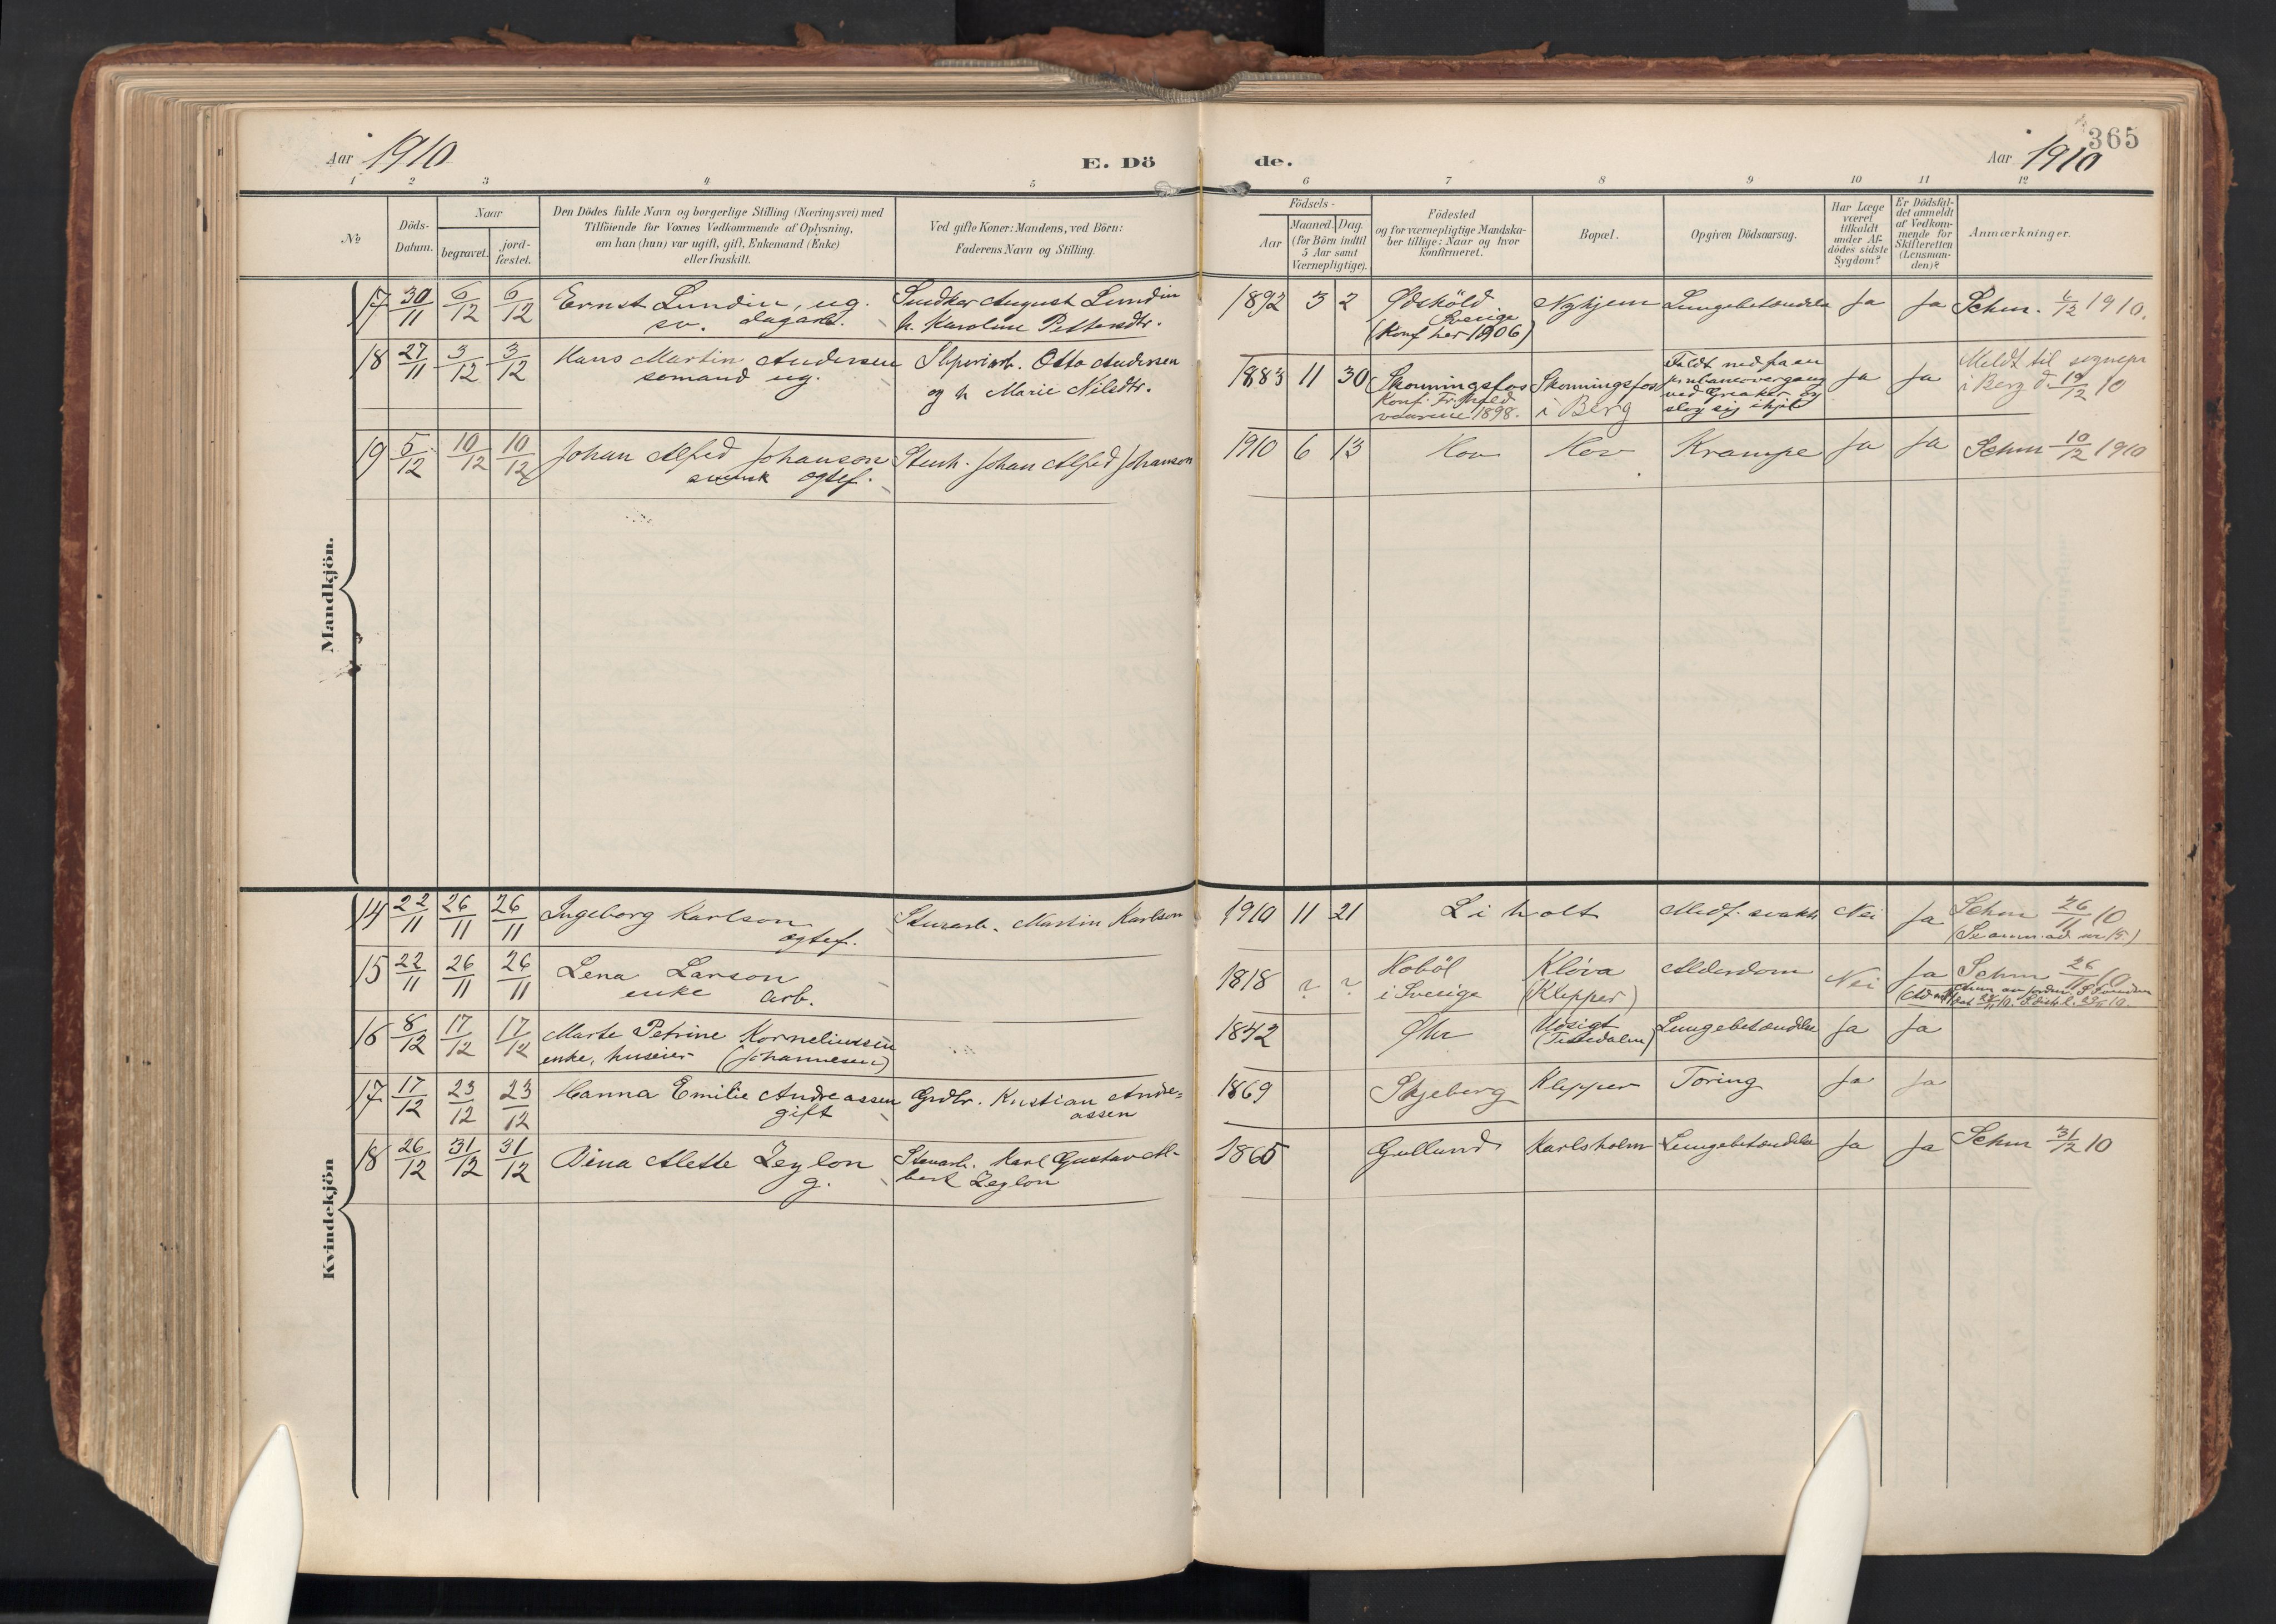 Aar 1910
E. Dö
de.
365
Aar 1910
1 2 3 4 5 6 7 8 9 10 11 12
No
Döds-
Datum.
Naar
begravet.
jord-
fæstet.
Den Dödes fulde Navn og borgerlige Stilling (Næringsvei) med
Tilföiende for Voxnes Vedkommende af Oplysning,
om han (hun) var ugift, gift, Enkemand (Enke)
eller fraskilt.
Ved gifte Koner: Mandens, ved Börn:
Faderens Navn og Stilling.
Födsels-
Aar
Maaned. Dag.
(for Börn indtil
5 Aar samt
Værnepligtige).
Födested
og for værnepligtige Mandska-
ber tillige: Naar og hvor
konfirmeret.
Bopæl.
Opgiven Dödsaarsag.
Har Læge
været
tilkaldt
under Af-
dödes sidste
Sygdom?
Er Dödsfal-
det anmeldt
af Vedkom-
mende for
Skifteretten
(Lensman-
den)?
Anmærkninger.
Mandkjön.
17 30/11 6/12 6/12 Ernst Lundin, ug. August Lundin 1892 3 2 Ødsköld Nyhjem Lungebetændelse Ja Ja Schm. 6/12 1910.
sv. dagarb. h. Karoline Pettersdtr. Sverige
(Konf her 1906)
18 27/11 3/12 3/12 Hans Martin Andersen Sliperiarb. Otto Andersen 1883 11 30 Skonningsfos Skonningsfos Faldt ned fra en Ja Ja Meldt til sognepr
sømand ug. og h Marie Nilsdtr. Konf. Fr.hald i Berg jernbaneovergang i Berg d. 19/12 10
vaaren 1898. ved Greaker og
slog sig ihjel
19 5/12 10/12 10/12 Johan Alfred Johanson Stenh. Johan Alfred Johanson 1910 6 13 Hov Hov Krampe Ja Ja Schm 10/12 1910
svensk ogtef.
Kvindekjön
14 22/11 26/11 26/11 Ingeborg Karlson Stenarb. Martin Karlson 1910 11 21 Liholt Medf. svakh Nei Ja Schm 26/11 10
ægtef. (Se anm. ad nr 15.)
15 22/11 26/11 26/11 Lena Larson 1818 ? ? Hoböl Klöva Alderdom Nei Ja Schm 26/11 10
enke arb. i Sverige (Klepper)
16 8/12 17/12 17/12 Marte Petrine Korneliussen 1842 Øhr Udsigt Lungebetændelse Ja Ja
enke, huseier (Johannesen) (Tistedalen)
17 17/12 23/12 23/12 Hanna Emilie Andreassen Grdbr. Kristian Andre= 1869 Skjeberg Klepper Tæring Ja Ja
gift assen
18 26/12 31/12 31/12 Dina Alette Zeylon Stenarb. Karl Gustav Al- 1865 Gullund Karlsholm Lungebetændelse Ja Ja Schm 31/12 10
g. bert Zeylon